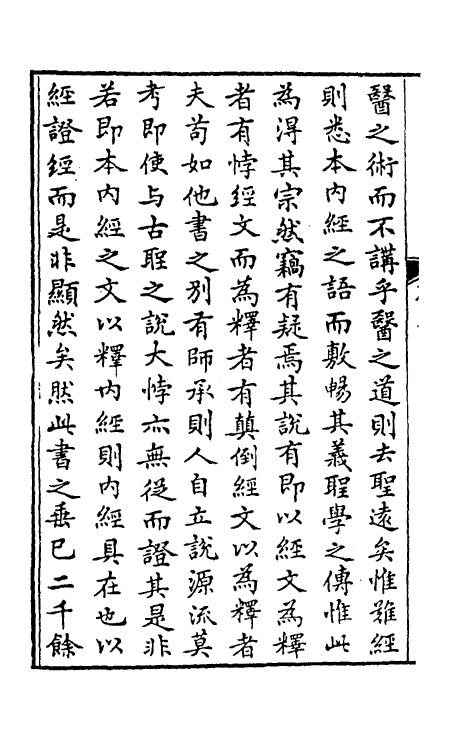 醫之術而不講乎醫之道則去聖遠矣惟難經
則悉本内經之語而敷暢其義聖學之傳惟此
為得其宗然竊有疑焉其說有即以經文為釋
者有悖經文而為釋者有顛倒經文以為釋者
夫苟如他書之别有師承則人自立說源流莫
考即使与古聖之說大悖亦無從而證其是非
若即本内經之文以釋内經則内經具在也以
經證經而是非顯然矣然此書之垂已二千餘